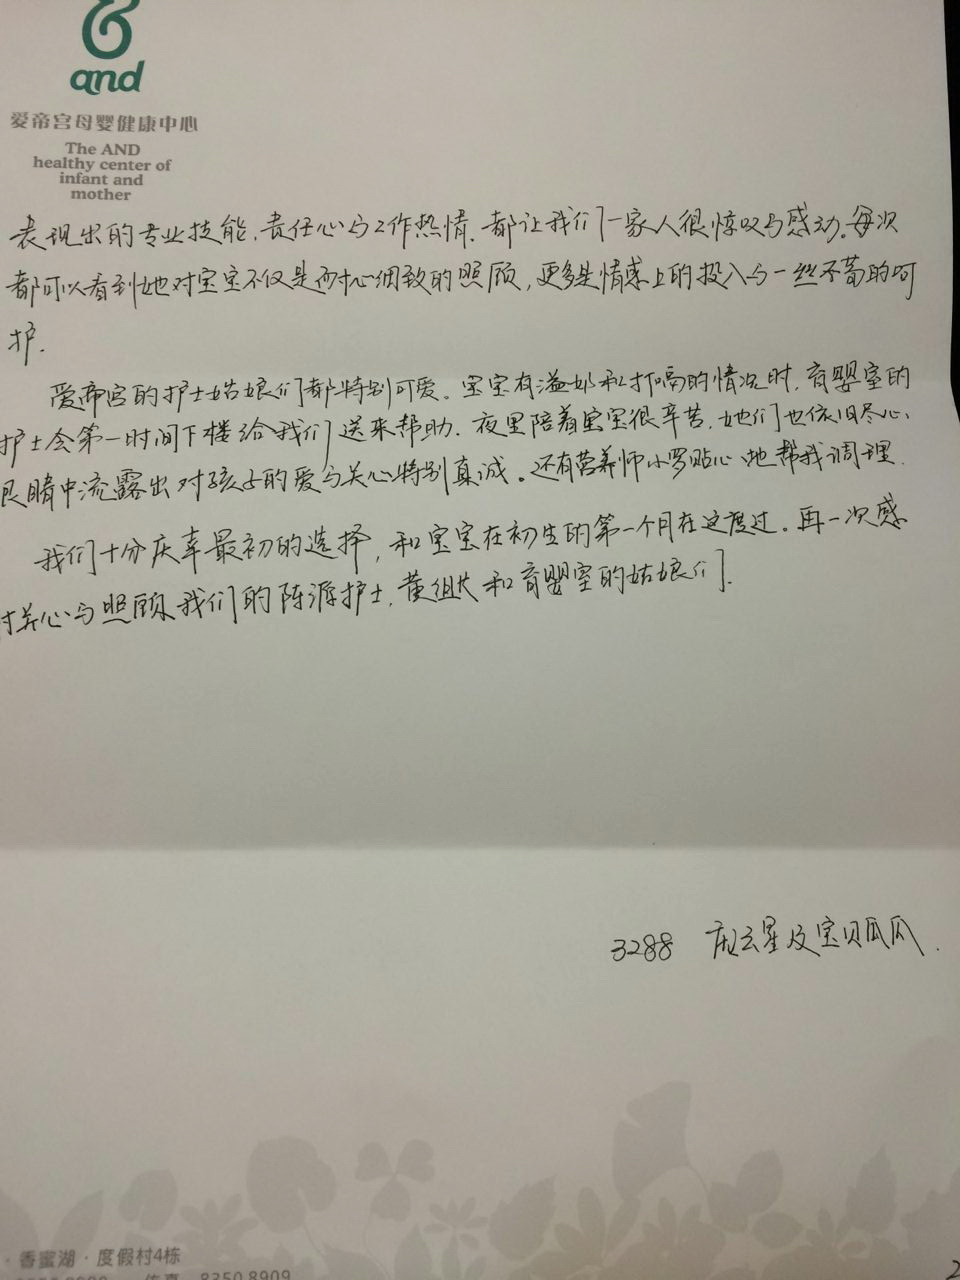 &
and
爱帝宫母婴健康中心
The AND
healthy center of
infant and
mother
表现出的专业技能,责任心与工作热情,都让我们一家人很惊叹与感动。每次
都可以看到她对宝宝不仅是耐心细致的照顾,更多是情感上的投入与一丝不苟的呵
护.
爱帝宫的护士姑娘们都特别可爱。宝宝有溢奶和打嗝的情况时,育婴室的
护士会第一时间下楼给我们送来帮助.夜里陪着宝宝很辛苦,她们也依旧尽心,
眼睛中流露出对孩子的爱与关心特别真诚。还有营养师小罗贴心地帮我调理.
我们十分庆幸最初的选择,和宝宝在初生的第一个月在这度过。再一次感
谢关心与照顾我们的陈源护士,黄组长和育婴室的姑娘们.
3288 星及宝贝瓜瓜.
·香蜜湖·度假村4栋
传真 8350 8909
2